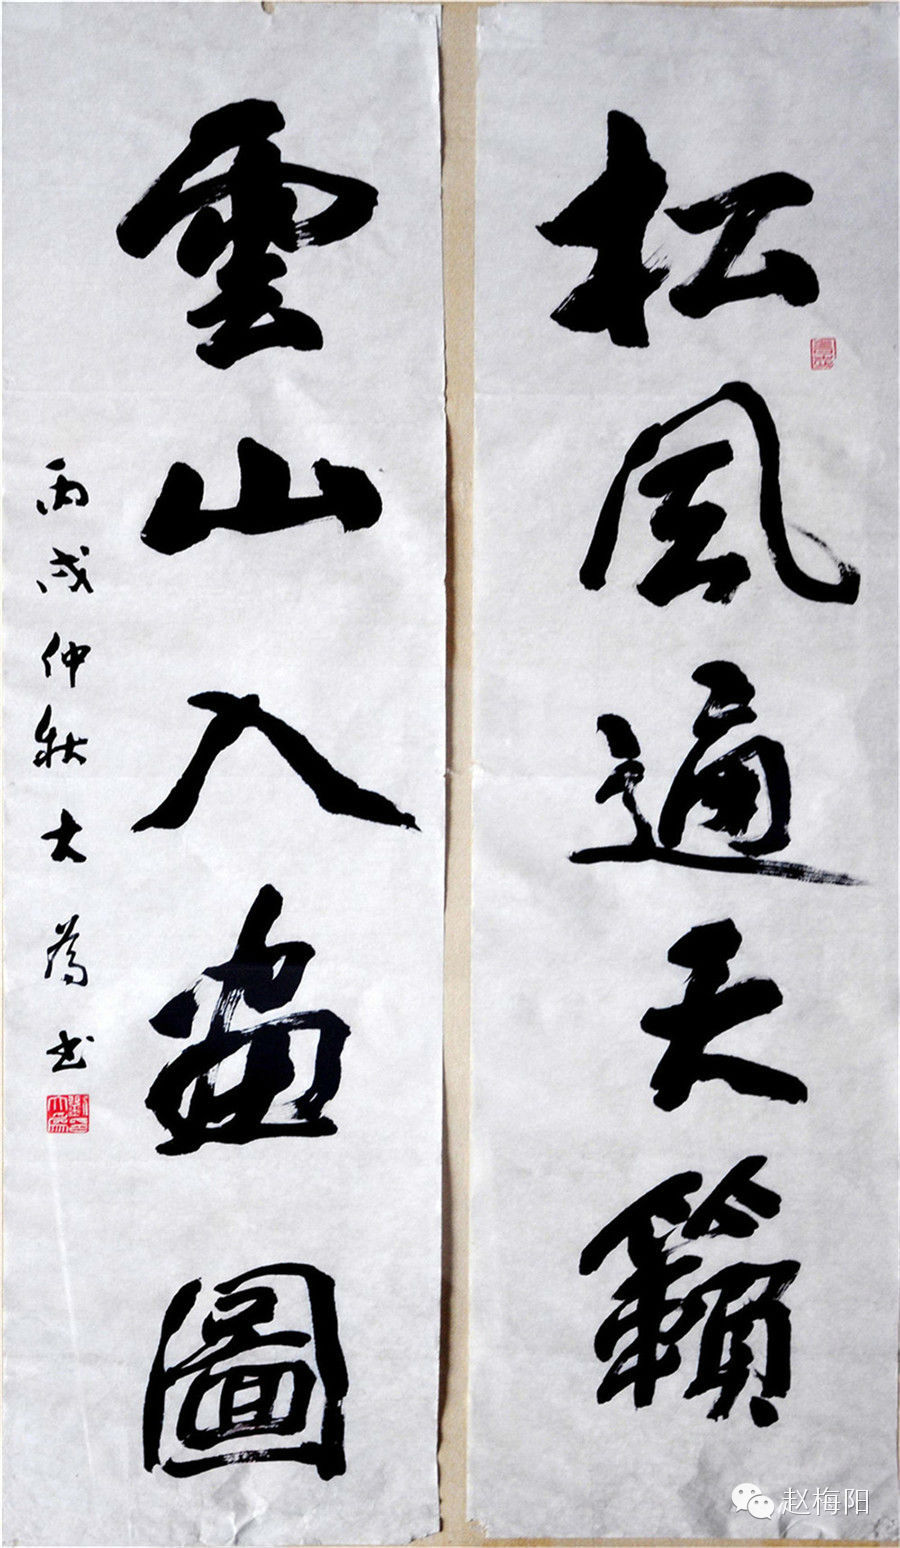 松風適天籟
雲山入畫圖
丙戌仲秋大為书
赵梅阳